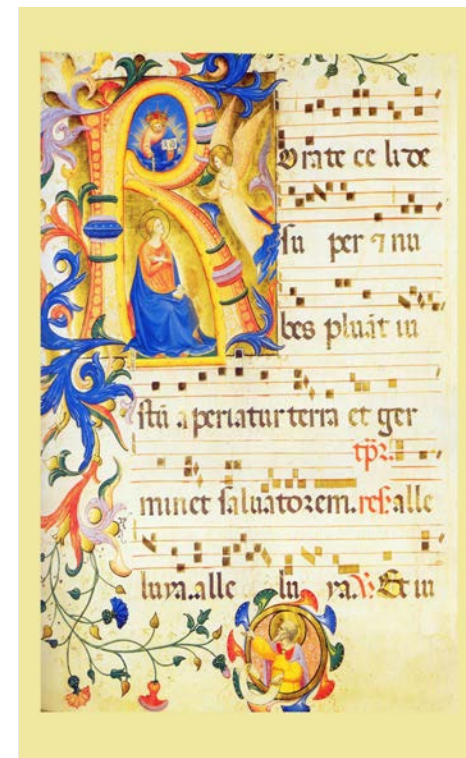 Rorate ce li de
su per ⁊ nu
bes pluāt iu
stū. a periatur terra et ger
tp̄r.
minet saluatorem. res. alle
luya..alle lu ya. V. Et iu